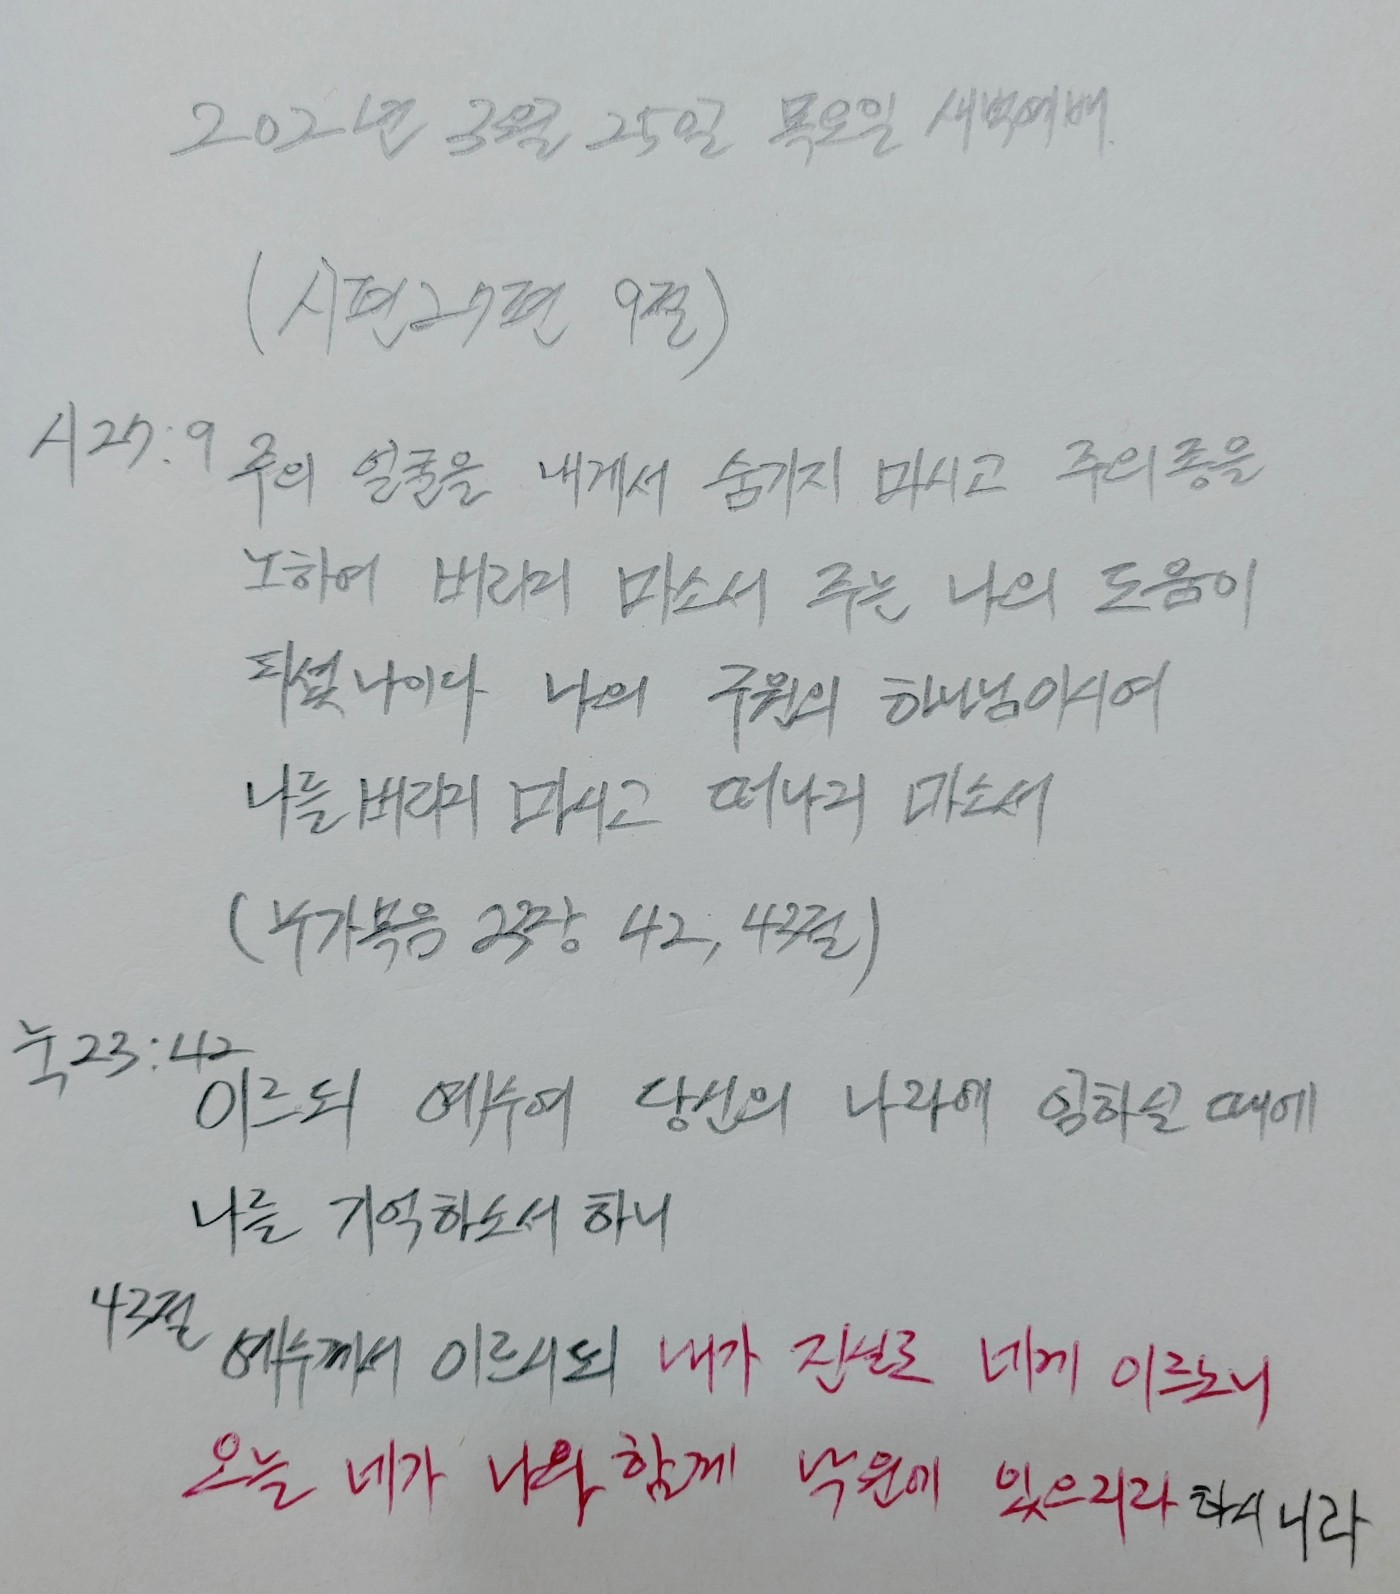 2021년 3월 25일 목요일 새벽예배.
(시편27편 9절)
시27:9 주의 얼굴을 내게서 숨기지 마시고 주의종을
노하여 버리지 마소서 주는 나의 도움이
되셨나이다 나의 구원의 하나님이시여
나를 버리지 마시고 떠나지 마소서
(누가복음 23장 42, 43절)
눅23:42
이르되 예수여 당신의 나라에 임하실 때에
나를 기억하소서 하니
43절
예수께서 이르시되 내가 진실로 네게 이르노니
오늘 네가 나와 함께 낙원에 있으리라 하시니라